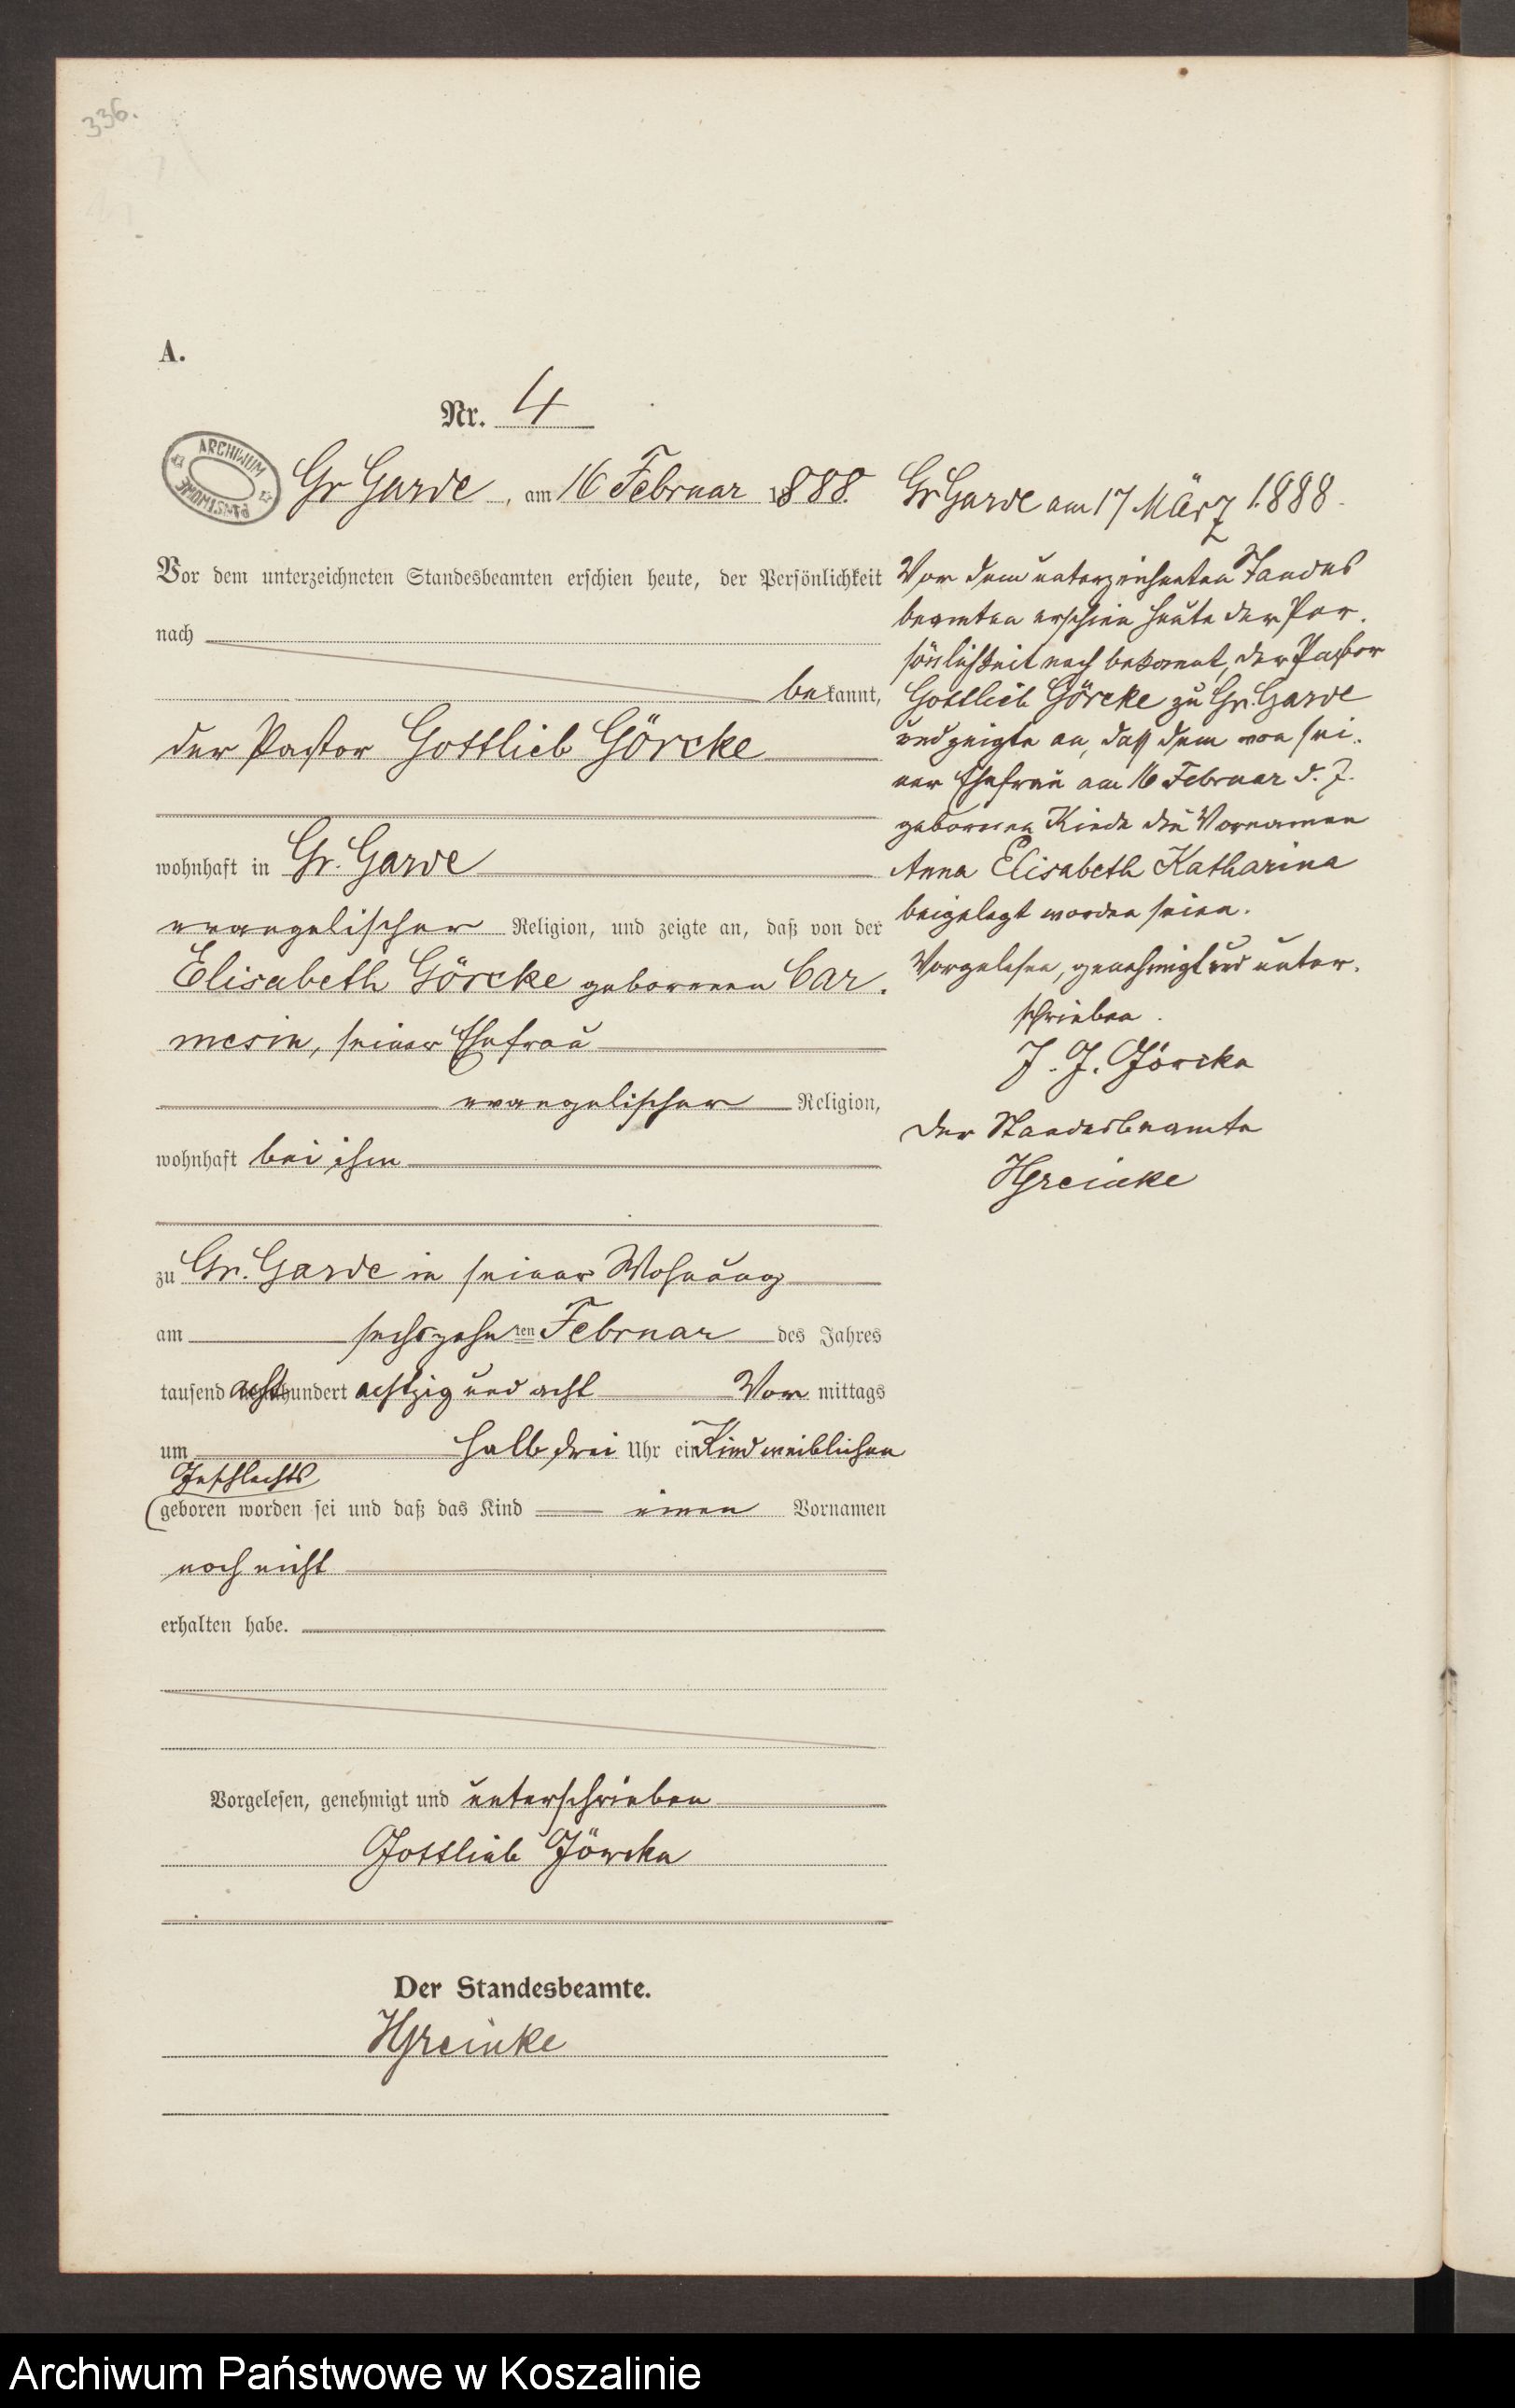 336.
A.
Nr. 4
ARCHIWUM PAŃSTWOWE
Gr Garde, am 16 Februar 1888.
Vor dem unterzeichneten Standesbeamten erschien heute, der Persönlichkeit
nach
bekannt,
der Pastor Gottlieb Görcke
wohnhaft in Gr. Garde
evangelischer Religion, und zeigte an, daß von der
Elisabeth Görcke geborenen Car-
mesin, seiner Ehefrau
evangelischer Religion,
wohnhaft bei ihm
zu Gr. Garde in seiner Wohnung
am sechszehnten Februar des Jahres
tausend achthundert achtzig und acht Vormittags
um halb drei Uhr ein Kind weiblichen
Geschlechts
geboren worden sei und daß das Kind einen Vornamen
noch nicht
erhalten habe.
Vorgelesen, genehmigt und unterschrieben
Gottlieb Görcke
Der Standesbeamte.
HGreinke
Gr Garde am 17 März 1888.
Vor dem unterzeichneten Standes
beamten erschien heute der Per-
sönlichkeit nach bekannt, der Pastor
Gottlieb Görcke zu Gr. Garde
und zeigte an, daß dem von sei-
ner Ehefrau am 16 Februar d. J.
geborenen Kinde die Vornamen
Anna Elisabeth Katharina
beigelegt worden seien.
Vorgelesen, genehmigt und unter-
schrieben.
J. G. Görcke
Der Standesbeamte
HGreinke
Archiwum Państwowe w Koszalinie